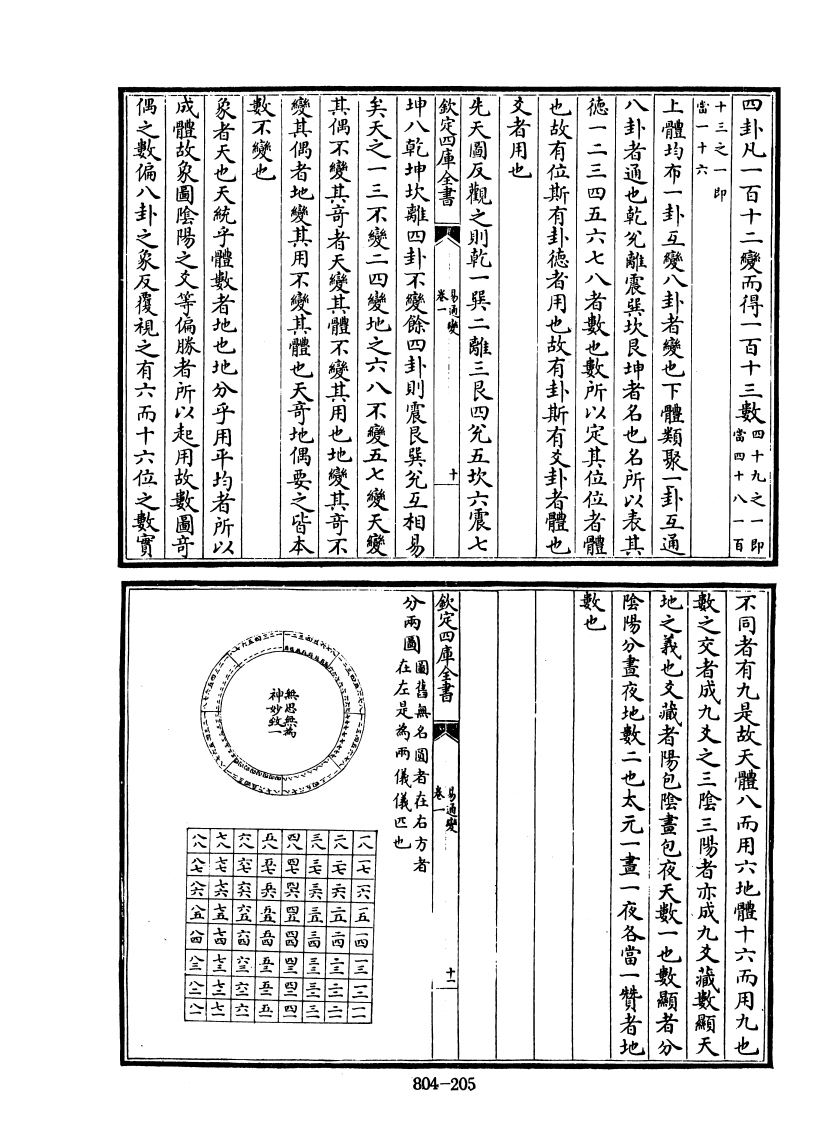 四卦凡一百十二變而得一百十三數四十九之一即當四十八一百
十三之一即當一十六
上體均布一卦互變八卦者變也下體類聚一卦互通
八卦者通也乾兊離震巽坎艮坤者名也名所以表其
德一二三四五六七八者數也數所以定其位位者體
也故有位斯有卦德者用也故有卦斯有爻卦者體也
爻者用也
先天圖反觀之則乾一巽二離三艮四兊五坎六震七
欽定四庫全書
易通變
卷一
十
坤八乾坤坎離四卦不變餘四卦則震艮巽兊互相易
矣天之一三不變二四變地之六八不變五七變天變
其偶不變其奇者天變其體不變其用也地變其奇不
變其偶者地變其用不變其體也天奇地偶要之皆本
數不變也
象者天也天統乎體數者地也地分乎用平均者所以
成體故象圖陰陽之爻等偏勝者所以起用故數圖奇
偶之數偏八卦之象反覆視之有六而十六位之數實
不同者有九是故天體八而用六地體十六而用九也
數之交者成九爻之三陰三陽者亦成九爻藏數顯天
地之義也爻藏者陽包陰晝包夜天數一也數顯者分
陰陽分晝夜地數二也太元一晝一夜各當一贊者地
數也
欽定四庫全書
易通變
卷一
十一
分兩圖圖舊無名圓者在右方者
在左是為兩儀儀匹也
無思無為
神妙致一
一八 一七 一六 一五 一四 一三 一二 一一
二八 二七 二六 二五 二四 二三 二二 二一
三八 三七 三六 三五 三四 三三 三二 三一
四八 四七 四六 四五 四四 四三 四二 四一
五八 五七 五六 五五 五四 五三 五二 五一
六八 六七 六六 六五 六四 六三 六二 六一
七八 七七 七六 七五 七四 七三 七二 七一
八八 八七 八六 八五 八四 八三 八二 八一
804-205